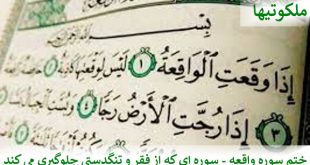 ملکوتیها
إِذَا وَقَعَتِ الْوَاقِعَةُ ١ لَيْسَ لِوَقْعَتِهَا كَاذِبَةٌ
٣ إِذَا رُجَّتِ الْأَرْضُ رَجًّا ٤ وَبُسَّتِ الْجِبَالُ
ختم سوره واقعه - سوره ای که از فقر و تنگدستی جلوگیری می کند